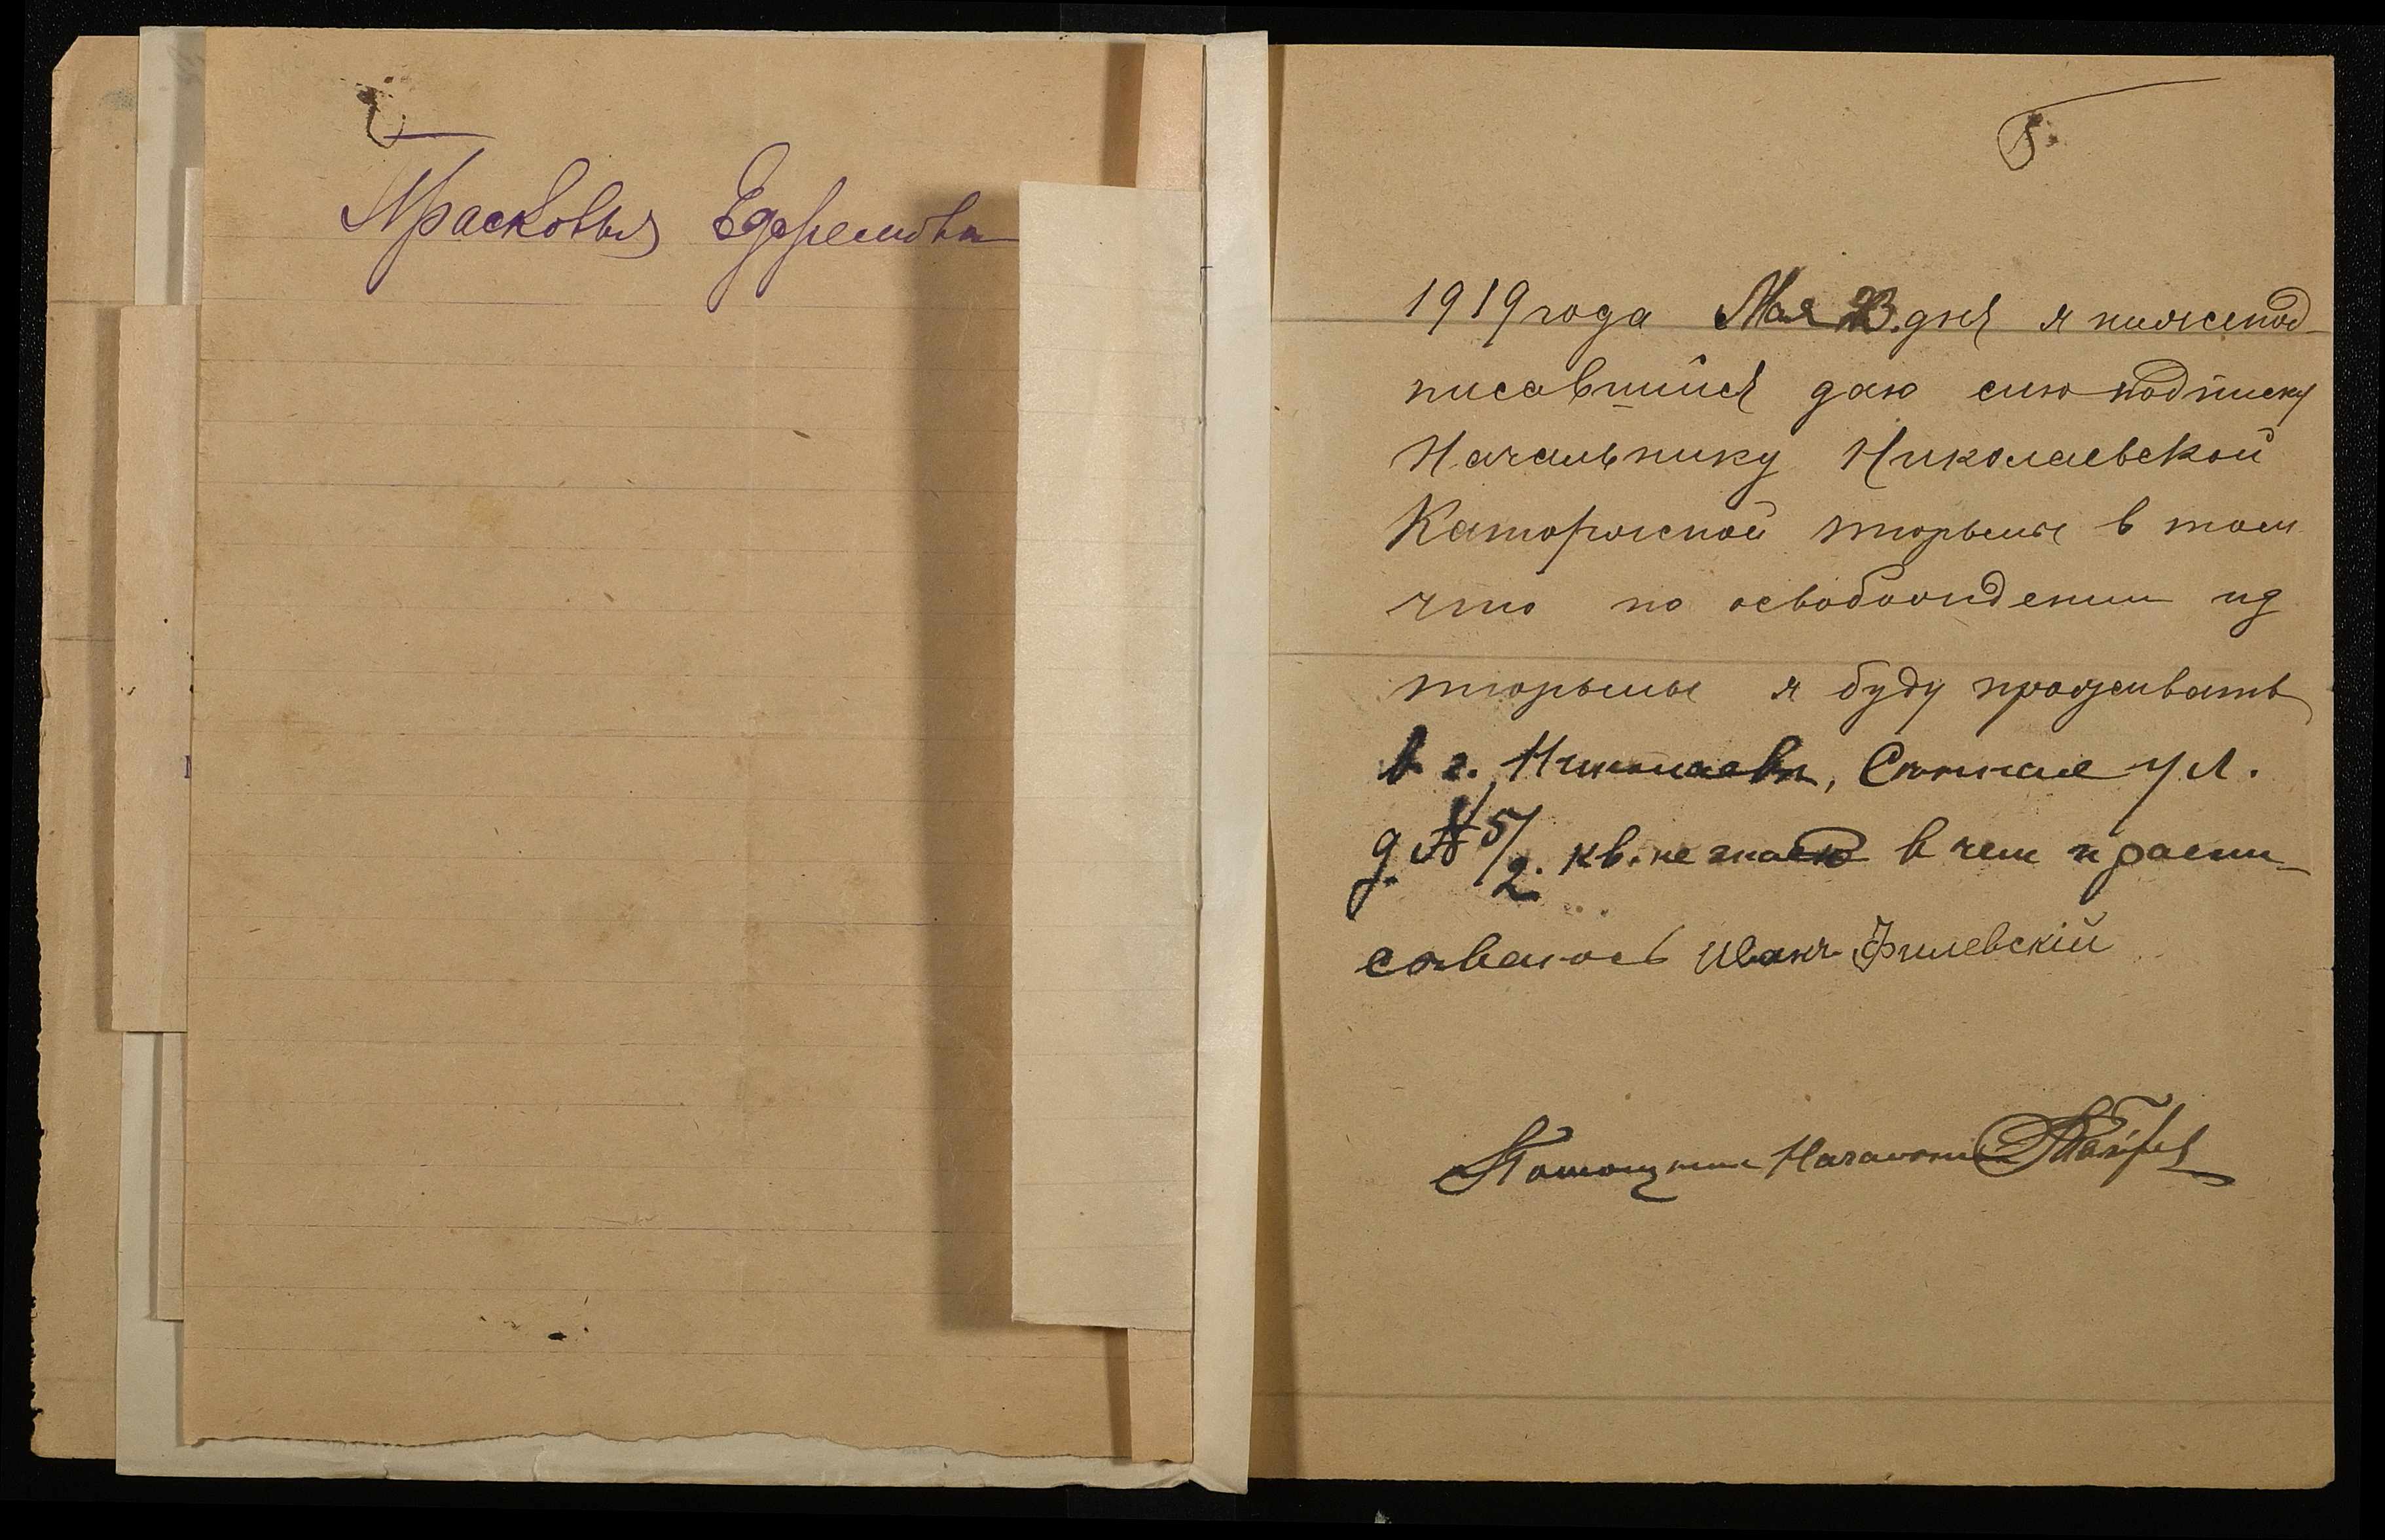 Прасковья Ефремова
5.
1919 года Мая 23. дня я нижепод-
писавшийся даю сию подписку
Начальнику Николаевской
Каторжной тюрьмы в том
что по освобождении из
тюрьмы я буду проживать
в г. Николаевъ, Сенная ул.
д. № 5/2. кв. не знаю в чем и распи-
сываюсь Иванъ Филевскій
Помощник Начальника